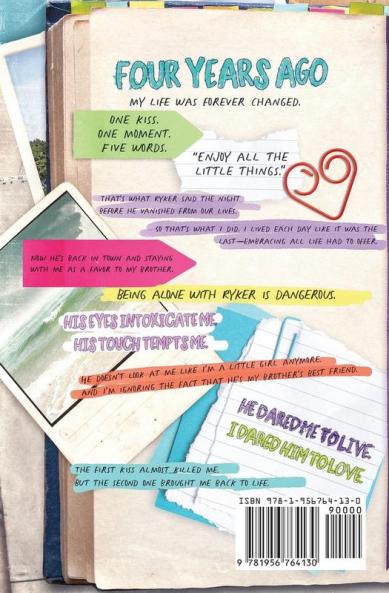 FOUR YEARS AGO
MY LIFE WAS FOREVER CHANGED.
ONE KISS.
ONE MOMENT.
FIVE WORDS.
"ENJOY ALL THE
LITTLE THINGS."
THAT'S WHAT RYKER SAID THE NIGHT
BEFORE HE VANISHED FROM OUR LIVES.
SO THAT'S WHAT I DID. I LIVED EACH DAY LIKE IT WAS THE
LAST—EMBRACING ALL LIFE HAD TO OFFER.
NOW HE'S BACK IN TOWN AND STAYING
WITH ME AS A FAVOR TO MY BROTHER.
BEING ALONE WITH RYKER IS DANGEROUS.
HIS EYES INTOXICATE ME.
HIS TOUCH TEMPTS ME.
HE DOESN'T LOOK AT ME LIKE I'M A LITTLE GIRL ANYMORE.
AND I'M IGNORING THE FACT THAT HE'S MY BROTHER'S BEST FRIEND.
HE DARED ME TO LIVE.
I DARED HIM TO LOVE.
THE FIRST KISS ALMOST KILLED ME.
BUT THE SECOND ONE BROUGHT ME BACK TO LIFE.
ISBN 978-1-956764-13-0
90000
9 781956 764130